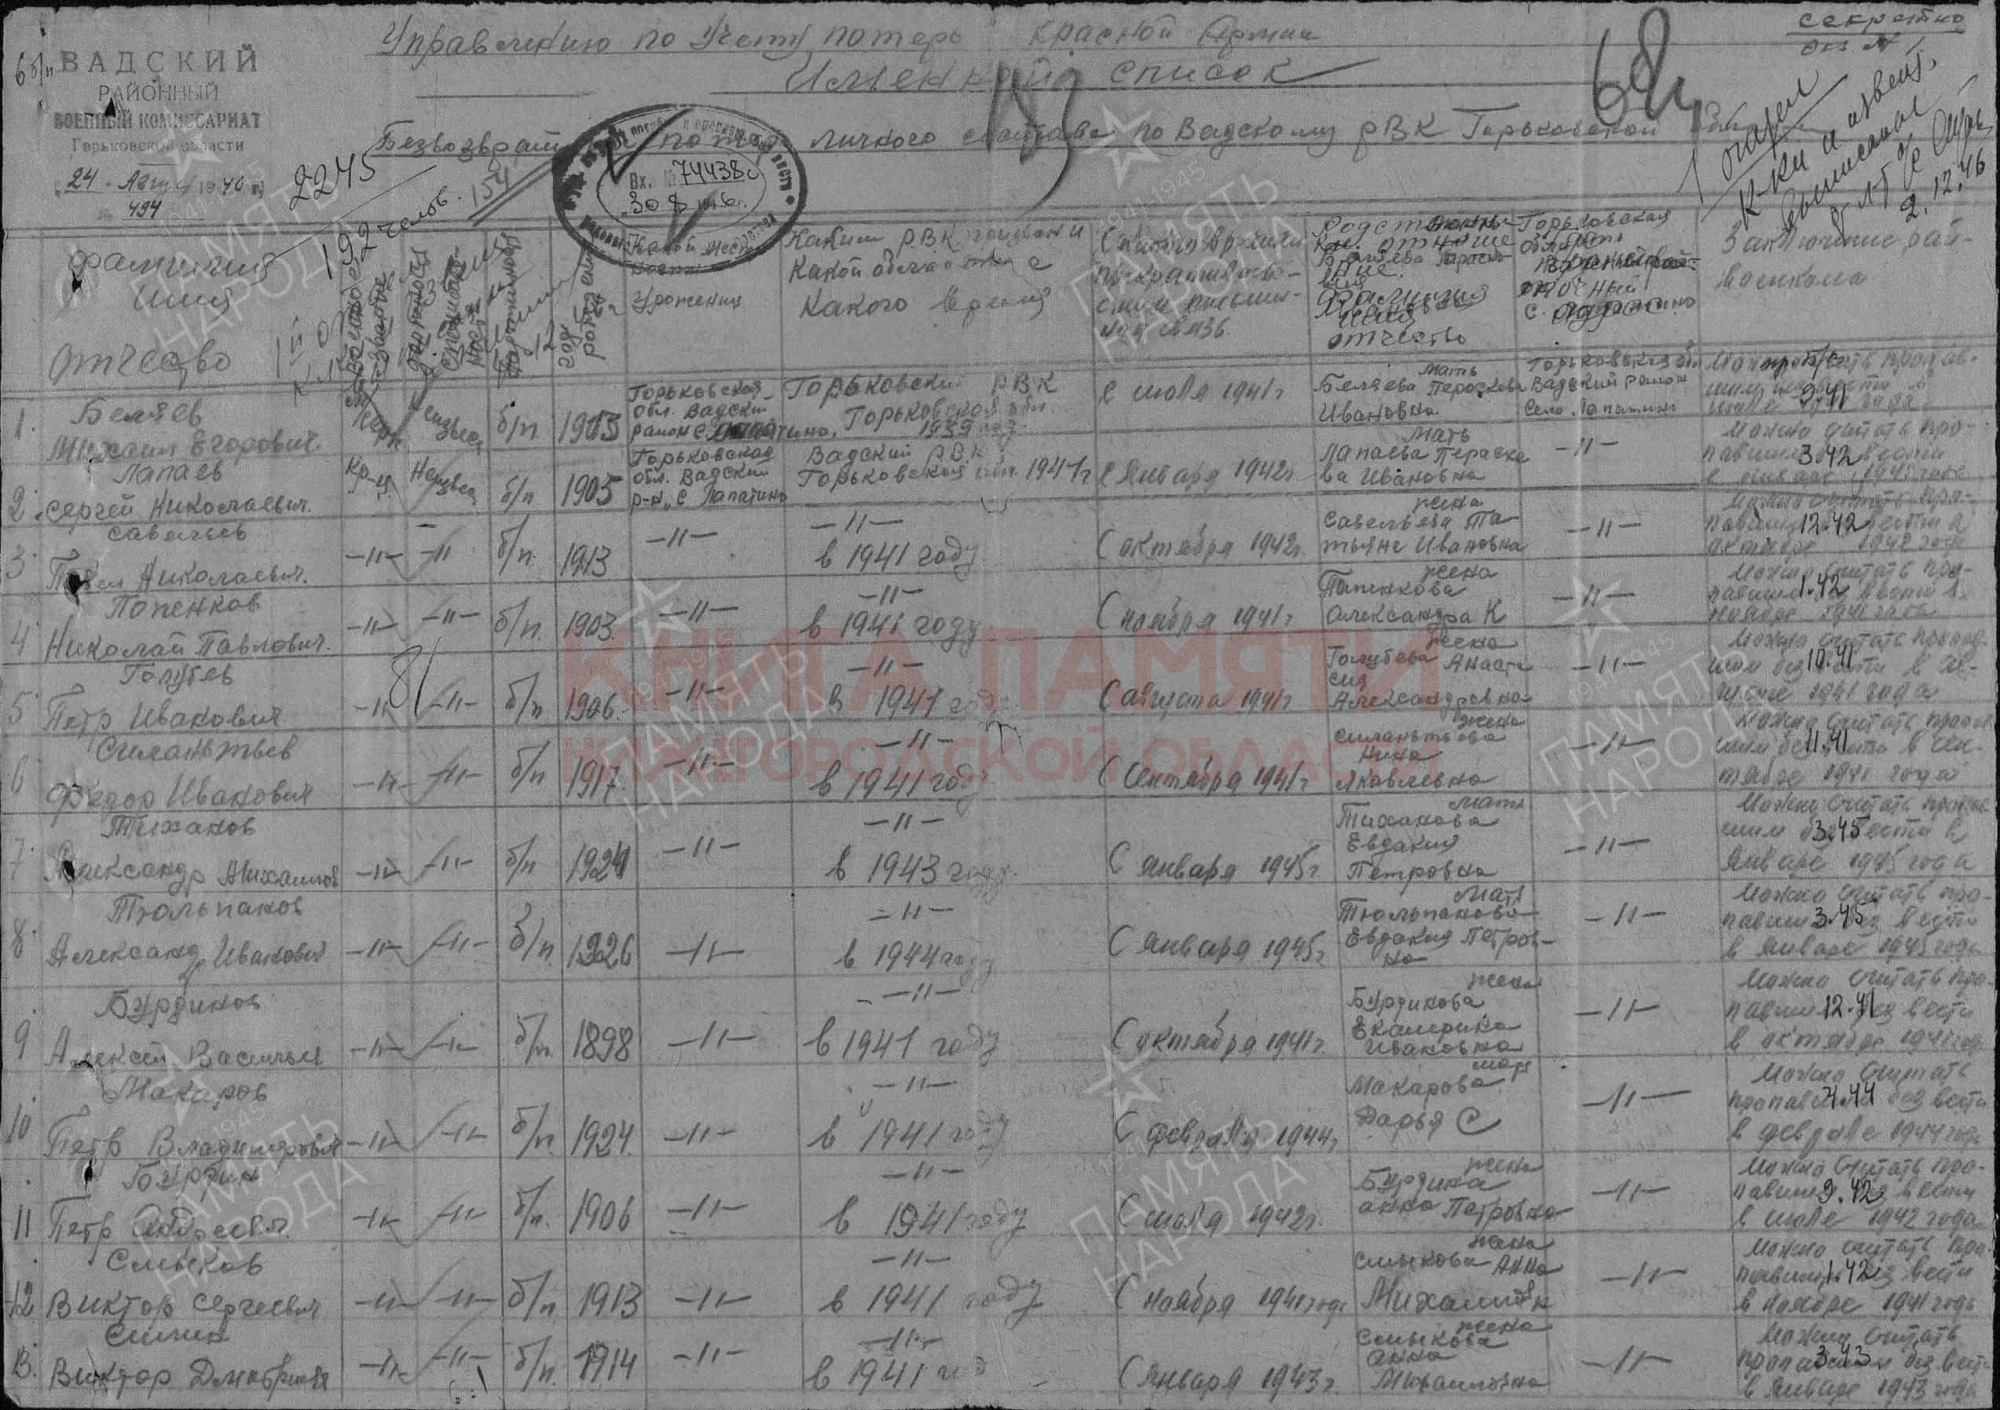 секретно
экз № 1
Управлению по учету потерь Красной Армии
Именной список
Безвозврат потерь личного состава по Вадскому РВК Горьковской
ВАДСКИЙ
РАЙОННЫЙ
ВОЕННЫЙ КОМИССАРИАТ
Горьковской области
24 Август 1946 г.
№ 494
2245
192 челов. 154
Вх. № 74438с
30 8 1946 г.
68
1 отдел
К-ки и извещ.
выписаны
2.12.46
Фамилия
Имя
отчество
Военное звание
год рождения
Уроженец
Каким РВК призван и
какой области и с
какого время
С какого времени
прекратилась
с ним письмен-
ная связь.
Фамилия
Имя
отчество
Заключение рай-
военкома
1. Беляев
Михаил Егорович.
б/п 1915
Горьковская
обл. Вадский
район с. Лопатино.
Горьковский РВК
Горьковской обл.
1939 год
с июля 1941 г
Мать
Беляева Пероскева
Ивановна
Горьковская обл
Вадский район
Село Лапатино
Можно считать пропав-
шим без вести в
июле 1941 года
9.41
2. Лапаев
Сергей Николаевич.
Кр-ц Неизвес б/п 1905
Горьковская
обл. Вадский
р-н, с Лапатино
Вадский РВК
Горьковской обл. 1941 г
с Января 1942 г
Мать
Лапаева Пераске
ва Ивановна
—"—
Можно считать про-
павшим без вести
в январе 1942 года
3.42
3. Савельев
Павел Николаевич.
—"— —"— б/п. 1913 —"—
—"—
в 1941 году
С октября 1942 г.
жена
Савельева Та-
тьяна Ивановна
—"—
Можно считать про-
павшим без вести в
октябре 1942 года
12.42
4. Попенков
Николай Павлович.
—"— —"— б/п. 1903. —"—
—"—
в 1941 году
С ноября 1941 г.
жена
Попенкова
Александра К
—"—
Можно считать про-
павшим без вести в
ноябре 1941 года
1.42
5. Голубев
Петр Иванович
—"— —"— б/п 1906. —"—
—"—
в 1941 году
С августа 1941 г
жена
Голубева Анаста
сия
Александровна
—"—
Можно считать пропав-
шим без вести в ав-
густе 1941 года
10.41
6. Силантьев
Федор Иванович
—"— —"— б/п 1917. —"—
—"—
в 1941 году
С Сентября 1941 г
жена
Силантьева
Нина
Яковлевна
—"—
Можно считать пропав-
шим без вести в сен-
тябре 1941 года
11.41
7. Тиханов
Александр Михайлов
—"— —"— б/п 1924 —"—
—"—
в 1943 году
С января 1945 г
Мать
Тиханова
Евдакия
Петровна
—"—
Можно считать пропав-
шим без вести в
январе 1945 года
3.45
8. Тюльпаков
Александр Иванович
—"— —"— б/п. 1926 —"—
—"—
в 1944 году
С Января 1945 г
Мать
Тюльпакова
Евдакия Петров-
на
—"—
Можно считать про-
павшим без вести
в январе 1945 года
3.45
9 Бурдиков
Алексей Васильев
—"— —"— б/п. 1898 —"—
—"—
в 1941 году
С октября 1941 г.
жена
Бурдикова
Екатерина
Ивановна
—"—
Можно считать про-
павшим без вести
в октябре 1941 года
12.41
10 Макаров
Петр Владимирович
—"— —"— б/п. 1924. —"—
—"—
в 1941 году
С февраля 1944 г.
мать
Макарова
Дарья С
—"—
Можно считать
пропавшим без вести
в феврале 1944 года
4.44
11 Бурдин
Петр Андреевич.
—"— —"— б/п. 1906 —"—
—"—
в 1941 году
С июля 1942 г.
жена
Бурдина
Анна Петровна
—"—
Можно считать про-
павшим без вести
в июле 1942 года
9.42
12 Смыков
Виктор Сергеевич
—"— —"— б/п 1913 —"—
—"—
в 1941 году
С ноября 1941 года
жена
Смыкова Анна
—"—
Можно считать про-
павшим без вести
в ноябре 1941 года
1.42
13. Силин
Виктор Дмитриевич
—"— —"— б/п. 1914 —"—
—"—
в 1941 год
С Января 1943 г.
жена
Смыкова
Анна
Михайловна
—"—
Можно считать
пропавшим без вести
в Январе 1943 года
3.43
КНИГА ПАМЯТИ
НИЖЕГОРОДСКОЙ ОБЛАСТИ
ПАМЯТЬ
НАРОДА
1941-1945